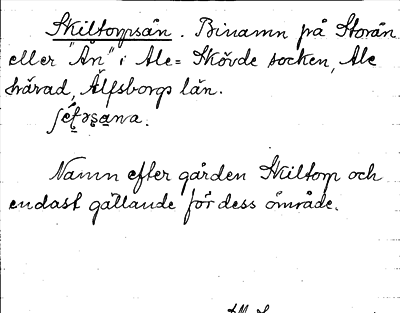 Skiltorpsån. Binamn på Storån
eller "Ån" i Ale-Skövde socken, Ale
härad, Älfsborgs län.

Namn efter gården Skiltorp och
endast gällande för dess område.